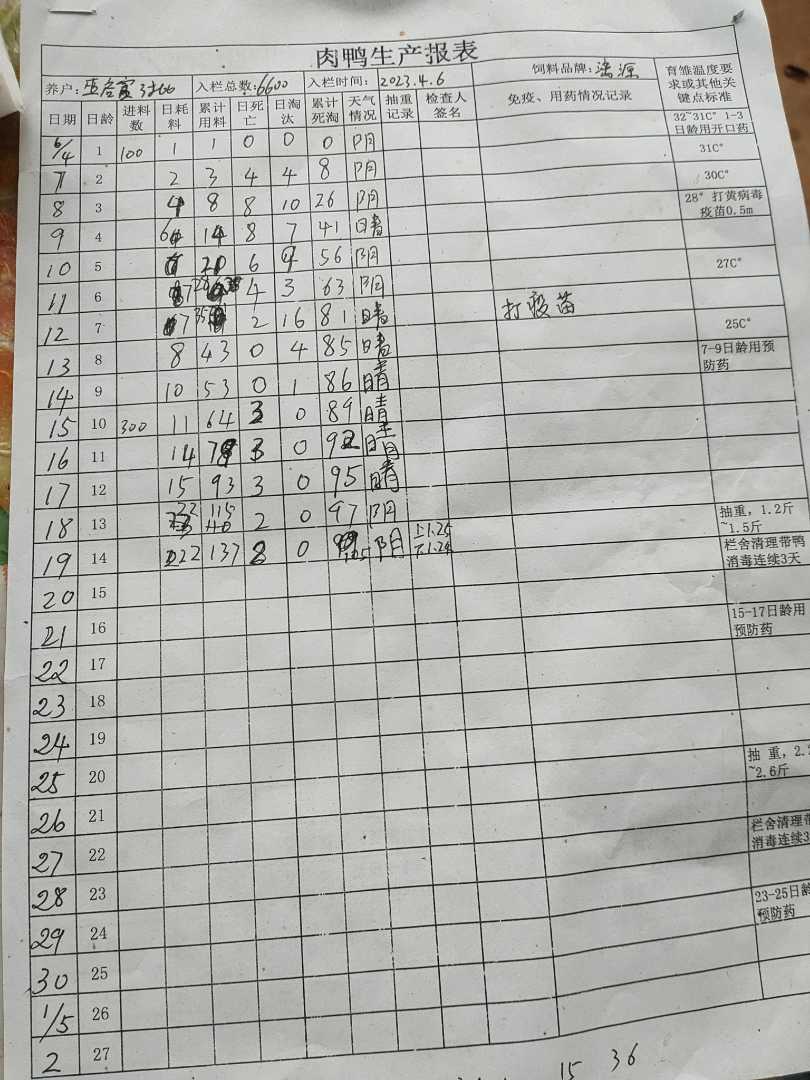 肉鸭生产报表
养户: 入栏总数:6600 入栏时间: 2023.4.6 饲料品牌: 育雏温度要求或其他关键点标准
日期 日龄 进料数 日耗料 累计用料 日死亡 日淘汰 累计死淘 天气情况 抽重记录 检查人签名 免疫、用药情况记录
6/4 1 100 1 1 0 0 0 阴 32~31C° 1-3日龄用开口药
7 2 2 3 4 4 8 阴 31C°
8 3 4 8 8 10 26 阴 30C°
9 4 6 14 8 7 41 晴 28° 打黄病毒疫苗0.5m
10 5 6 56 阴
11 6 7 4 3 63 阴 27C°
12 7 7 35 2 16 81 晴 打疫苗
13 8 8 43 0 4 85 晴 25C°
14 9 10 53 0 1 86 晴 7-9日龄用预防药
15 10 300 11 64 3 0 89 晴
16 11 14 78 3 0 92 晴
17 12 15 93 3 0 95 晴
18 13 22 115 2 0 97 阴 抽重，1.2斤~1.5斤
19 14 22 137 8 0 105 阴 上1.25 下1.24 栏舍清理带鸭消毒连续3天
20 15
21 16 15-17日龄用预防药
22 17
23 18
24 19
25 20 抽 重，2. ~2.6斤
26 21
27 22 栏舍清理带 消毒连续3
28 23
29 24 23-25日龄 预防药
30 25
1/5 26
2 27
15 36